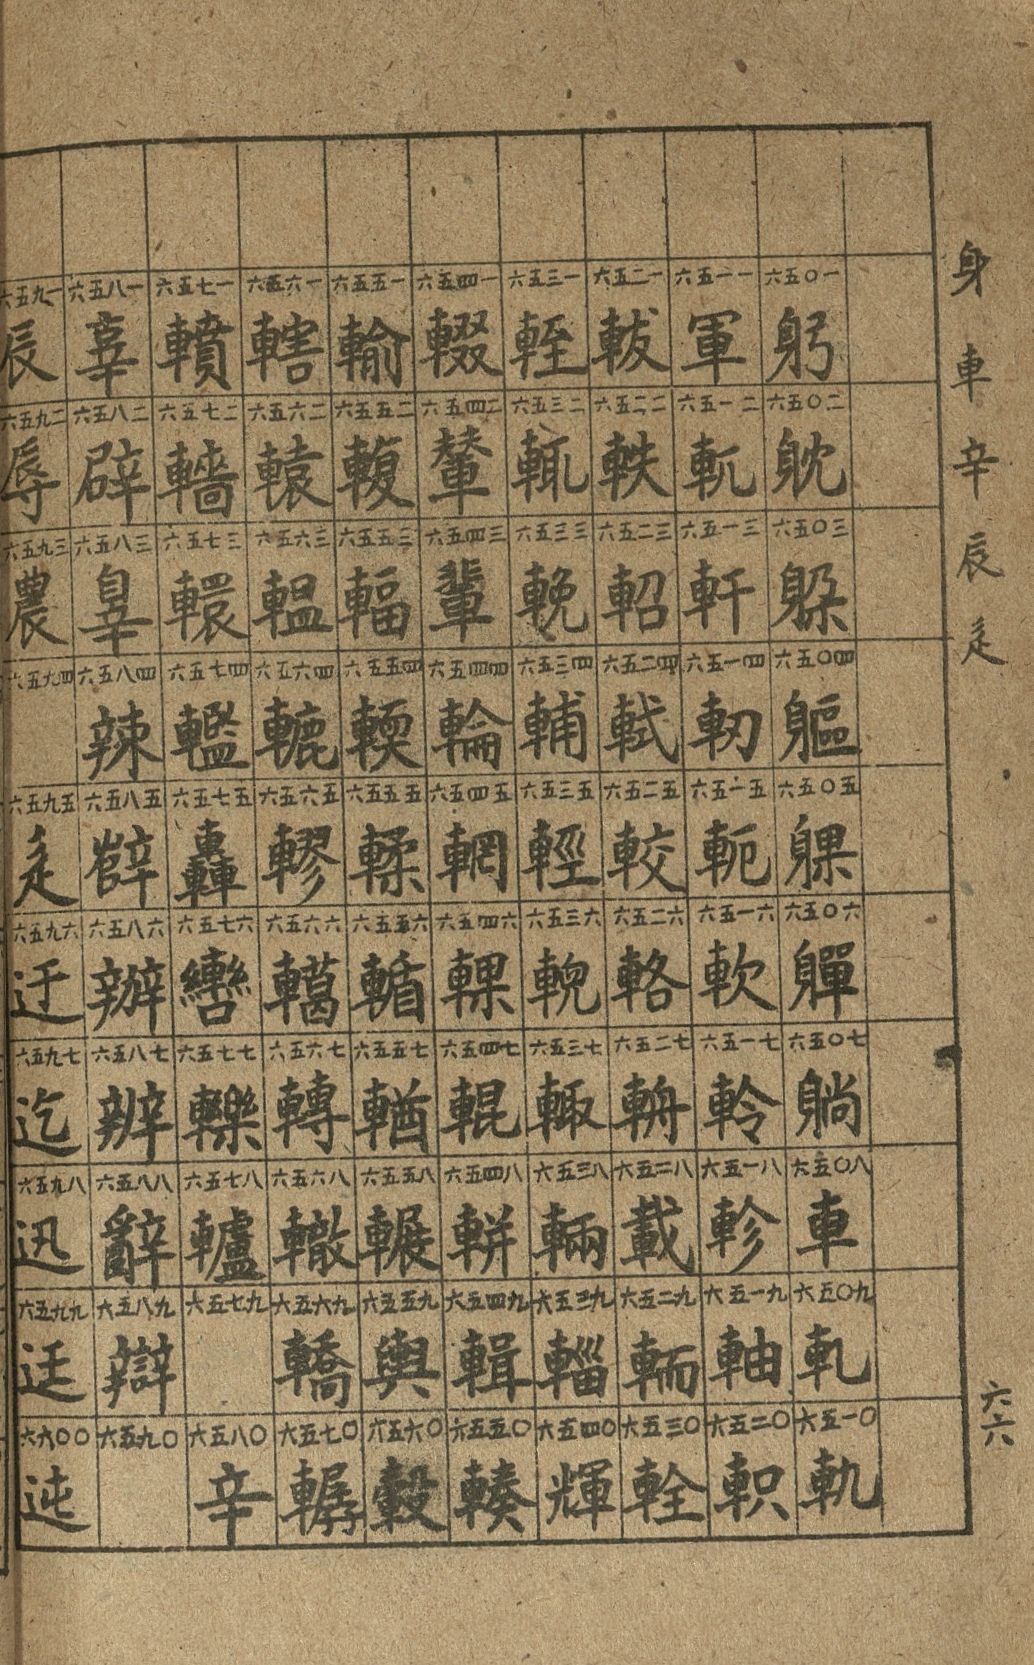 身 車 辛 辰 辵
六六
六五〇一 躬 六五〇二 躭 六五〇三 躲 六五〇四 軀 六五〇五 躶 六五〇六 軃 六五〇七 躺 六五〇八 車 六五〇九 軋 六五一〇 軌
六五一一 軍 六五一二 軏 六五一三 軒 六五一四 軔 六五一五 軛 六五一六 軟 六五一七 軨 六五一八 軫 六五一九 軸 六五二〇 軹
六五二一 軷 六五二二 軼 六五二三 軺 六五二四 軾 六五二五 較 六五二六 輅 六五二七 輈 六五二八 載 六五二九 輀 六五三〇 輇
六五三一 輊 六五三二 輒 六五三三 輓 六五三四 輔 六五三五 輕 六五三六 輗 六五三七 輙 六五三八 輛 六五三九 輜 六五四〇 輝
六五四一 輟 六五四二 輦 六五四三 輩 六五四四 輪 六五四五 輞 六五四六 輠 六五四七 輥 六五四八 輧 六五四九 輯 六五五〇 輳
六五五一 輸 六五五二 輹 六五五三 輻 六五五四 輭 六五五五 輮 六五五六 輴 六五五七 輶 六五五八 輾 六五五九 輿 六五六〇 轂
六五六一 轄 六五六二 轅 六五六三 輼 六五六四 轆 六五六五 轇 六五六六 轕 六五六七 轉 六五六八 轍 六五六九 轎 六五七〇 轏
六五七一 轒 六五七二 轖 六五七三 轘 六五七四 轞 六五七五 轟 六五七六 轡 六五七七 轢 六五七八 轤 六五七九 六五八〇 辛
六五八一 辜 六五八二 辟 六五八三 辠 六五八四 辣 六五八五 辥 六五八六 辦 六五八七 辨 六五八八 辭 六五八九 辯 六五九〇
六五九一 辰 六五九二 辱 六五九三 農 六五九四 六五九五 辵 六五九六 迂 六五九七 迄 六五九八 迅 六五九九 迋 六六〇〇 迍